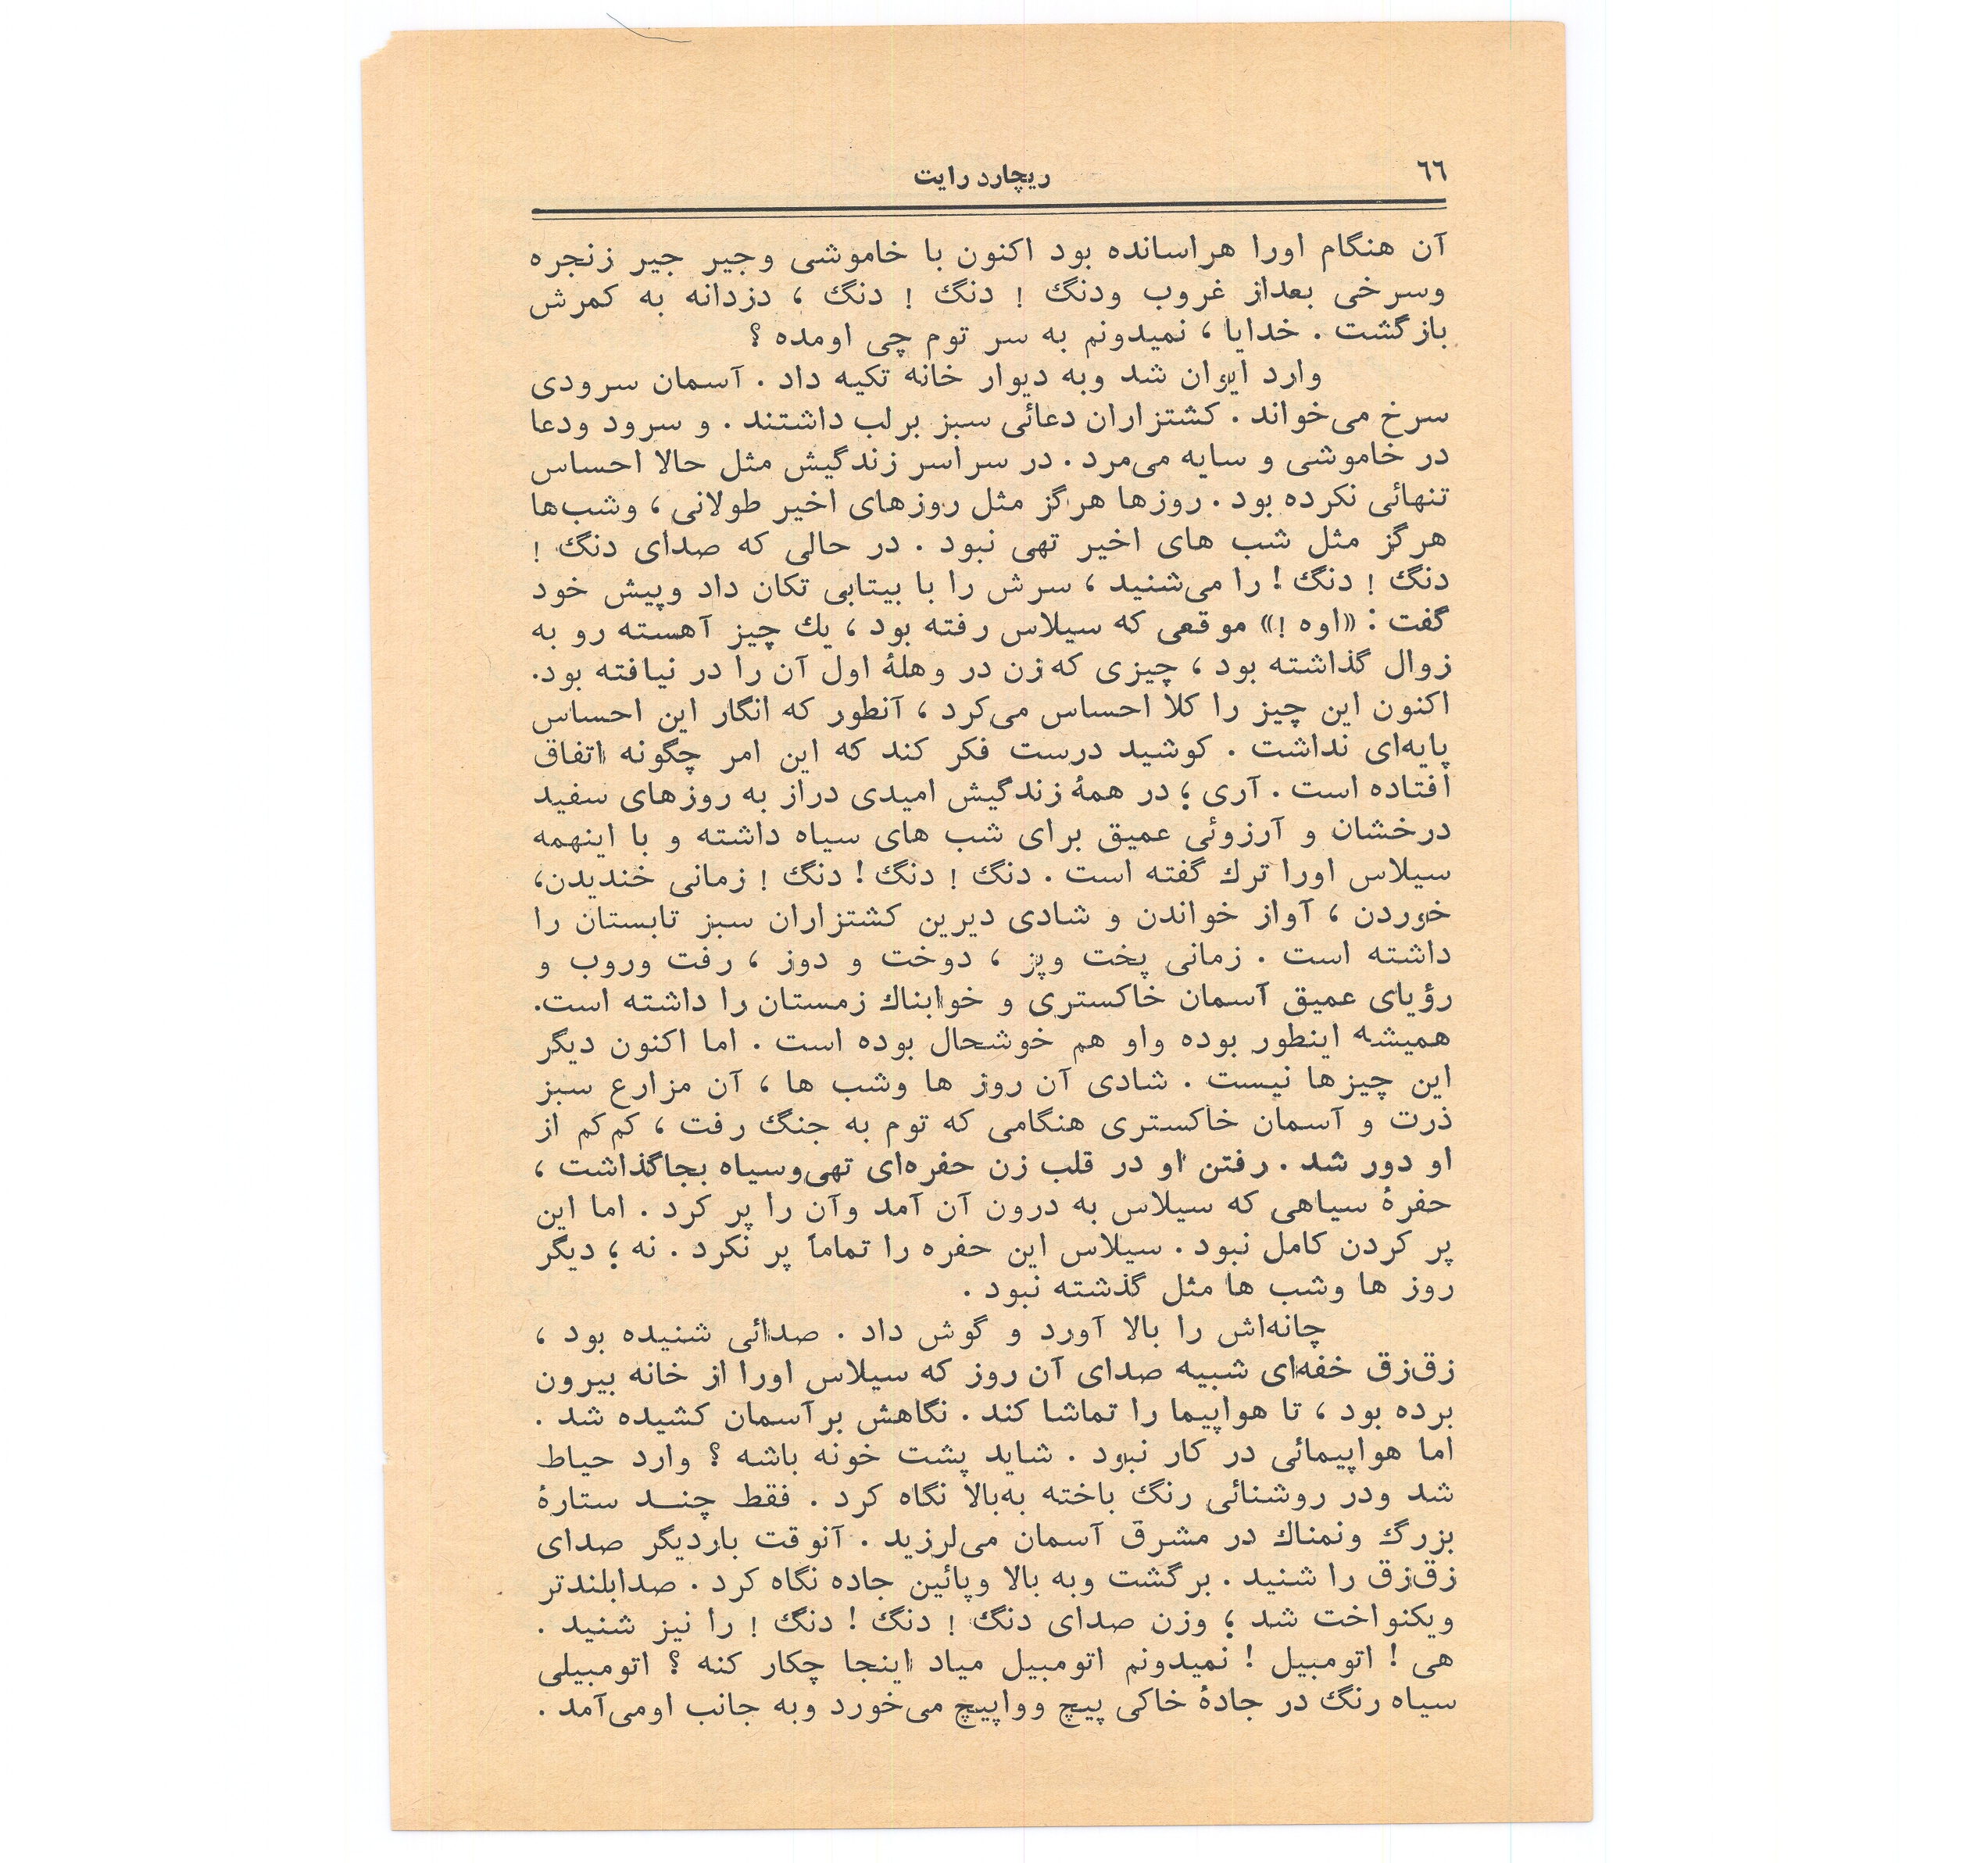 ٦٦
ریچارد رایت
آن هنگام اورا هراسانده بود اکنون با خاموشی وجیر جیر زنجره
وسرخی بعداز غروب ودنگ ! دنگ ! دنگ ، دزدانه به کمرش
بازگشت . خدایا ، نمیدونم به سر توم چی اومده ؟
وارد ایوان شد وبه دیوار خانه تکیه داد . آسمان سرودی
سرخ می‌خواند . کشتزاران دعائی سبز برلب داشتند . و سرود ودعا
در خاموشی و سایه می‌مرد . در سراسر زندگیش مثل حالا احساس
تنهائی نکرده بود . روزها هرگز مثل روزهای اخیر طولانی ، وشب‌ها
هرگز مثل شب های اخیر تهی نبود . در حالی که صدای دنگ !
دنگ ! دنگ ! را می‌شنید ، سرش را با بیتابی تکان داد وپیش خود
گفت : «اوه !» موقعی که سیلاس رفته بود ، یك چیز آهسته رو به
زوال گذاشته بود ، چیزی که زن در وهلهٔ اول آن را در نیافته بود.
اکنون این چیز را کلا احساس می‌کرد ، آنطور که انگار این احساس
پایه‌ای نداشت . کوشید درست فکر کند که این امر چگونه اتفاق
افتاده است . آری ؛ در همهٔ زندگیش امیدی دراز به روزهای سفید
درخشان و آرزوئی عمیق برای شب های سیاه داشته و با اینهمه
سیلاس اورا ترك گفته است . دنگ ! دنگ ! دنگ ! زمانی خندیدن،
خوردن ، آواز خواندن و شادی دیرین کشتزاران سبز تابستان را
داشته است . زمانی پخت وپز ، دوخت و دوز ، رفت وروب و
رؤیای عمیق آسمان خاکستری و خوابناك زمستان را داشته است.
همیشه اینطور بوده واو هم خوشحال بوده است . اما اکنون دیگر
این چیزها نیست . شادی آن روز ها وشب ها ، آن مزارع سبز
ذرت و آسمان خاکستری هنگامی که توم به جنگ رفت ، کم‌کم از
او دور شد . رفتن او در قلب زن حفره‌ای تهی‌وسیاه بجاگذاشت ،
حفرهٔ سیاهی که سیلاس به درون آن آمد وآن را پر کرد . اما این
پر کردن کامل نبود . سیلاس این حفره را تماماً پر نکرد . نه ؛ دیگر
روز ها وشب ها مثل گذشته نبود .
چانه‌اش را بالا آورد و گوش داد . صدائی شنیده بود ،
زق‌زق خفه‌ای شبیه صدای آن روز که سیلاس اورا از خانه بیرون
برده بود ، تا هواپیما را تماشا کند . نگاهش برآسمان کشیده شد .
اما هواپیمائی در کار نبود . شاید پشت خونه باشه ؟ وارد حیاط
شد ودر روشنائی رنگ باخته به‌بالا نگاه کرد . فقط چنـد ستارهٔ
بزرگ ونمناك در مشرق آسمان می‌لرزید . آنوقت باردیگر صدای
زق‌زق را شنید . برگشت وبه بالا وپائین جاده نگاه کرد . صدابلندتر
ویکنواخت شد ؛ وزن صدای دنگ ! دنگ ! دنگ ! را نیز شنید .
هی ! اتومبیل ! نمیدونم اتومبیل میاد اینجا چکار کنه ؟ اتومبیلی
سیاه رنگ در جادهٔ خاکی پیچ وواپیچ می‌خورد وبه جانب اومی‌آمد .